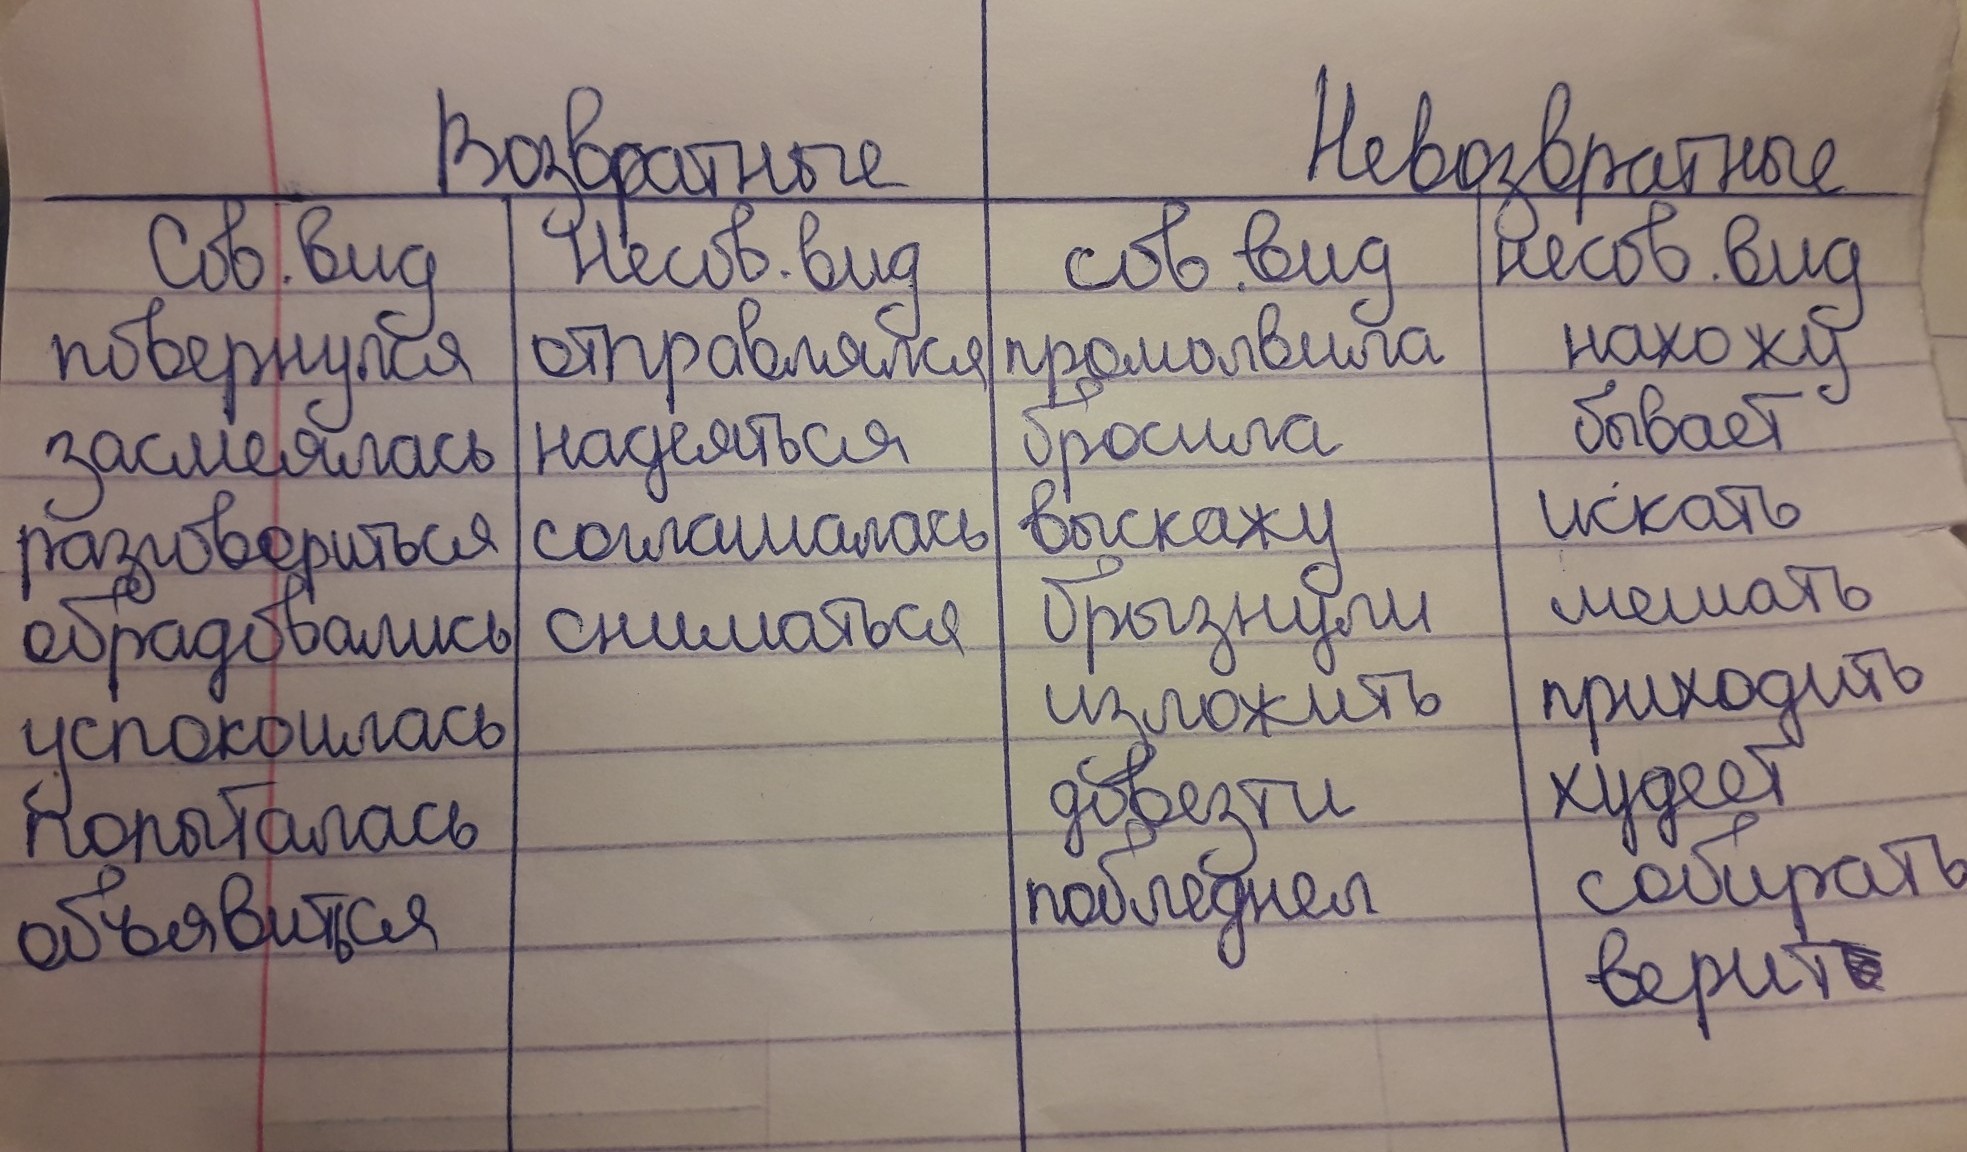 Возвратные Невозвратные
Сов.вид Несов.вид сов.вид Несов.вид
повернулся отправлялся промолвила нахожу
засмеялась надеяться бросила бывает
разговориться соглашалась выскажу искать
обрадовались сниматься брызнули мешать
успокоилась изложить приходить
попыталась довезти худеет
объявиться побледнел собирать
верить